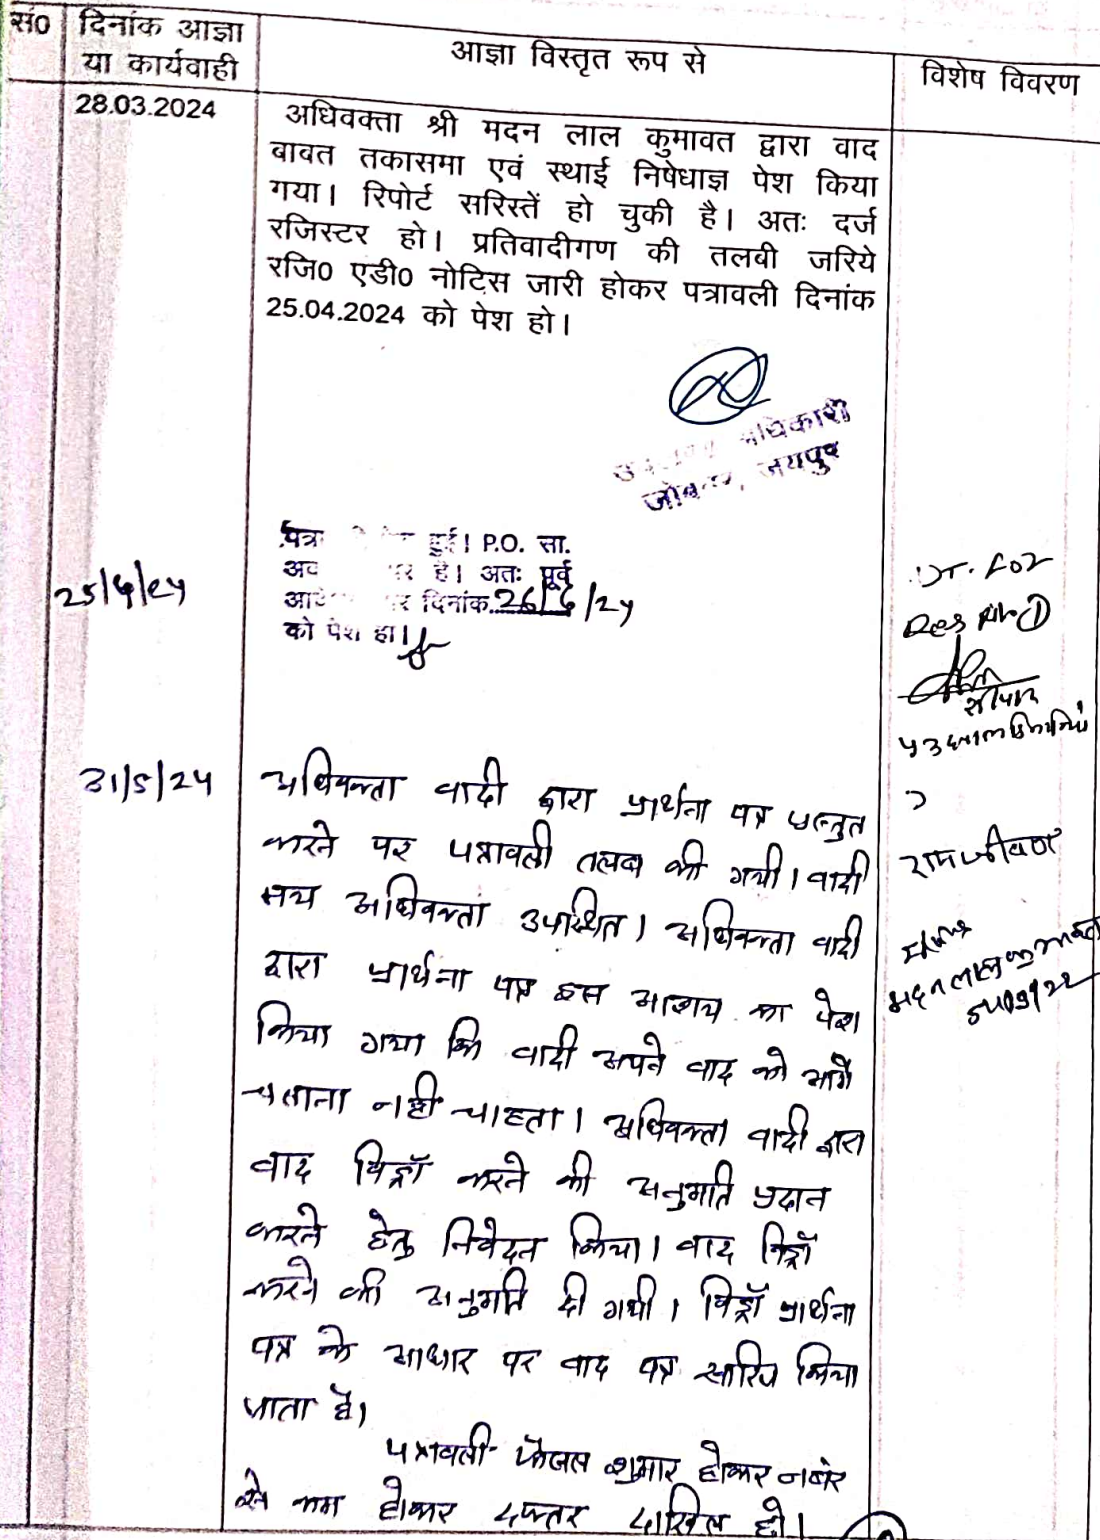 सं0 दिनांक आज्ञा या कार्यवाही
आज्ञा विस्तृत रूप से
विशेष विवरण
28.03.2024
अधिवक्ता श्री मदन लाल कुमावत द्वारा वाद
बावत तकासमा एवं स्थाई निषेधाज्ञ पेश किया
गया। रिपोर्ट सरिस्तें हो चुकी है। अतः दर्ज
रजिस्टर हो। प्रतिवादीगण की तलवी जरिये
रजि0 एडी0 नोटिस जारी होकर पत्रावली दिनांक
25.04.2024 को पेश हो।
अधिकारी
जयपुर
हुई। P.O. सा.
है। अतः पूर्व
25/4/24
दिनांक 26/6/24
को पेश हो।
31/5/24
अधिवक्ता वादी द्वारा प्रार्थना पत्र प्रस्तुत
करने पर पत्रावली तलब की गयी। वादी
रामजीवण
मय अधिवक्ता उपस्थित। अधिवक्ता वादी
द्वारा प्रार्थना पत्र इस आशय का पेश
मदन लाल कुमावत
किया गया कि वादी अपने वाद को आगे
चलाना नहीं चाहता। अधिवक्ता वादी द्वारा
वाद विड्रॉ करने की अनुमति प्रदान
करने हेतु निवेदन किया। वाद विड्रॉ
करने की अनुमति दी गयी। विड्रॉ प्रार्थना
पत्र के आधार पर वाद पत्र खारिज किया
जाता है।
पत्रावली फैसल शुमार होकर नबंर
से कम होकर दफ्तर दाखिल हो।